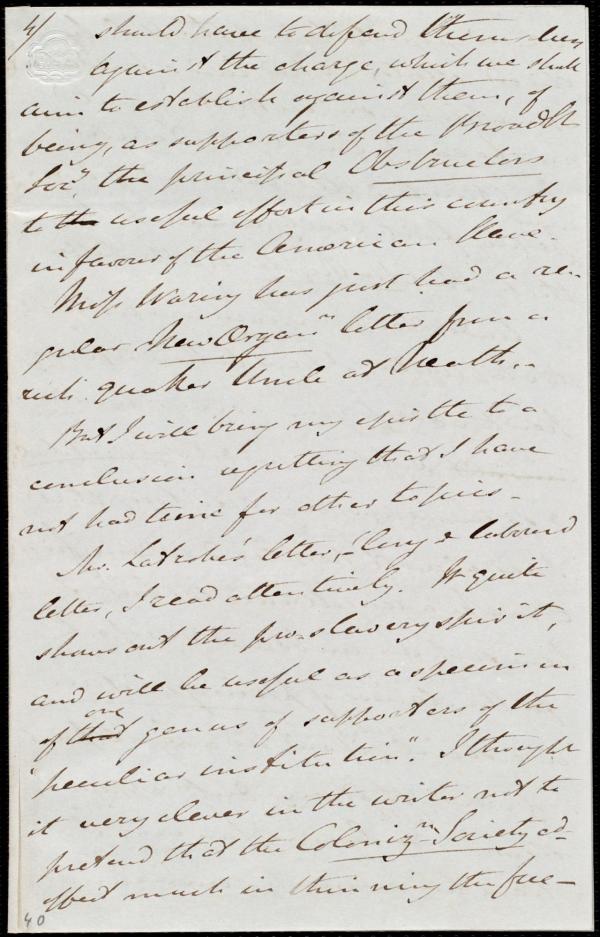 4/ should have to defend themselves
against the charge, which we shall
aim to establish against them, of
being, as supporters of the Broad St
Socy, the principal Obstructors
to the useful effort in this country
in favour of the American Slave.
Miss Waring has just had a re-
gular New Organn letter from a
rich quaker Uncle at Neath.
But I will bring my epistle to a
conclusion regretting that I have
not had time for other topics.
Mr. Latrobe's letter, long & labored
letter, I read attentively. It quite
shows out the pro-slavery spirit,
and will be useful as a specimen
of that one genus of supporters of the
"peculiar institution". I thought
it very clever in the writer not to
pretend that the Colonizn Society ed-
effect much in thinning the free-
40